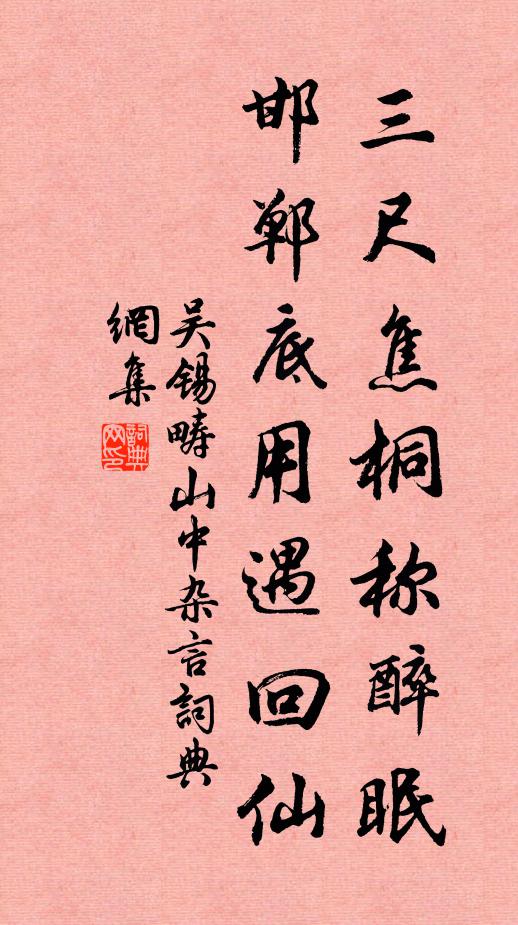 三尺焦桐称醉眠
邯郸底用遇回仙
吴锡畴山中杂言詞典
網集
詞典
网印